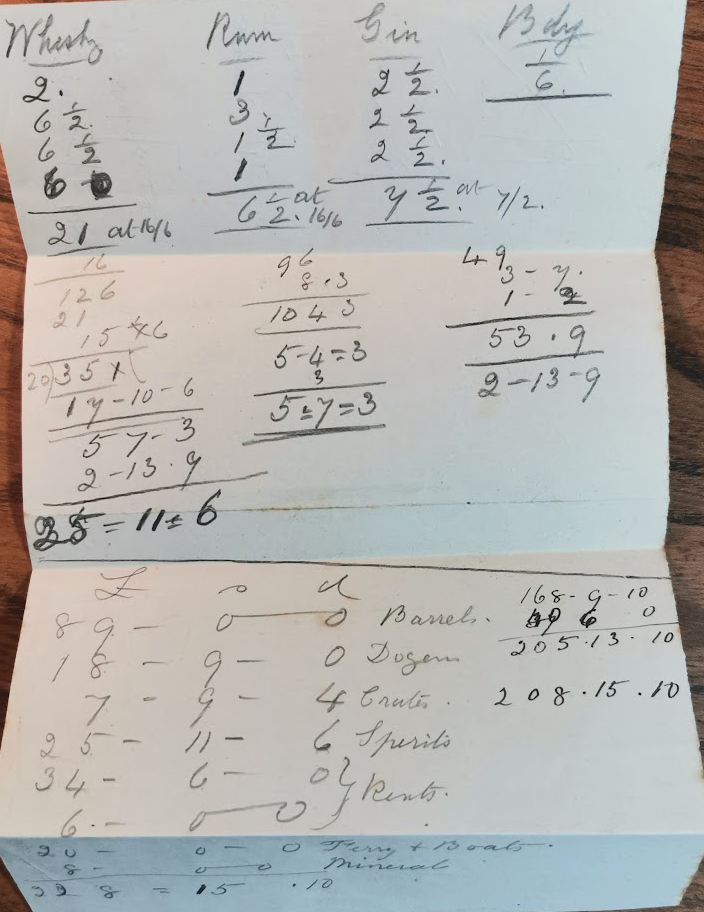 Whisky Rum Gin Bdy
2. 1 2 1/2. 1
6 1/2. 3 2 1/2. 6.
6 1/2 1 1/2 2 1/2.
6 1
21 at 16/6 6 1/2. at 16/6 7 1/2. at 7/2.
16 96 49
126 8.3 3 - 7.
21 104 3 1 - 2
15 6 5-4=3 53.9
20)35 3 2-13-9
17-10-6 5=7=3
5 7-3
2-13.9
35=11=6
£ s d
89 - 0 0 Barrels. 168-9-10
18 - 9 - 0 Dozens 6 0
7 - 9 - 4 Crates. 205.13.10
25 - 11 - 6 Sperits 208.15.10
34 - 6 - 0 } Rents.
6. - 0 0
20 - 0 - 0 Ferry + Boats.
8 - 0 0 Mineral
228 = 15 .10